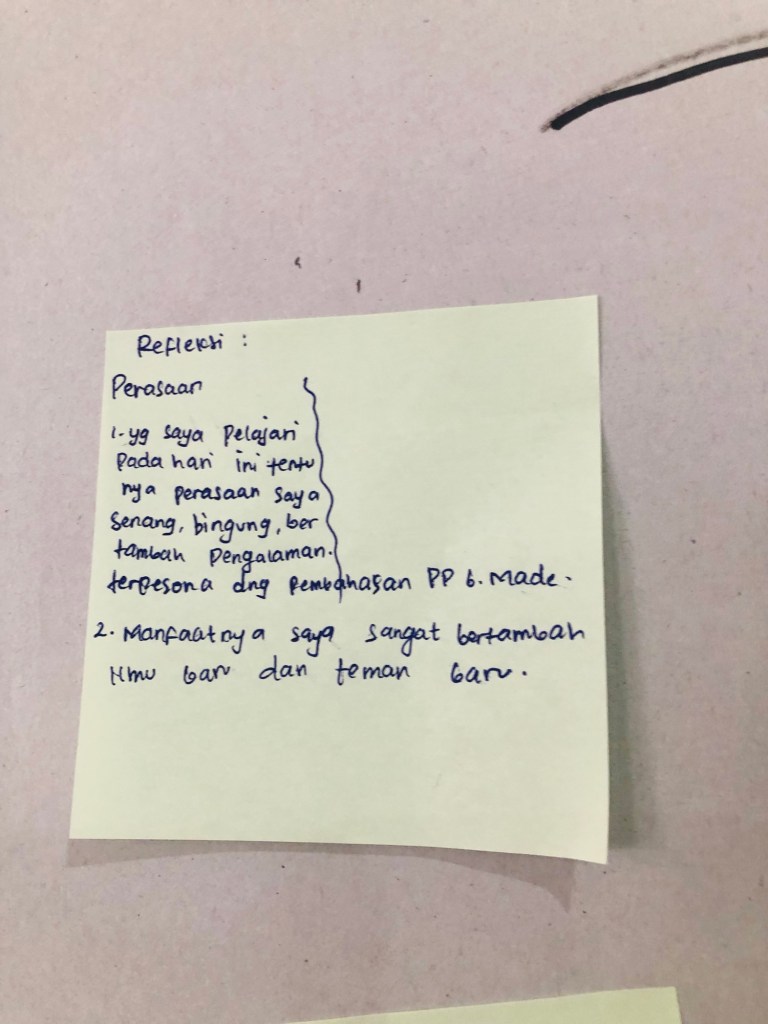 Refleksi :
Perasaan
1. yg saya pelajari
pada hari ini tentu
nya perasaan saya
senang, bingung, ber
tambah pengalaman.
terpesona dng pembahasan PP b. Made.
2. Manfaatnya saya sangat bertambah
ilmu baru dan teman baru.